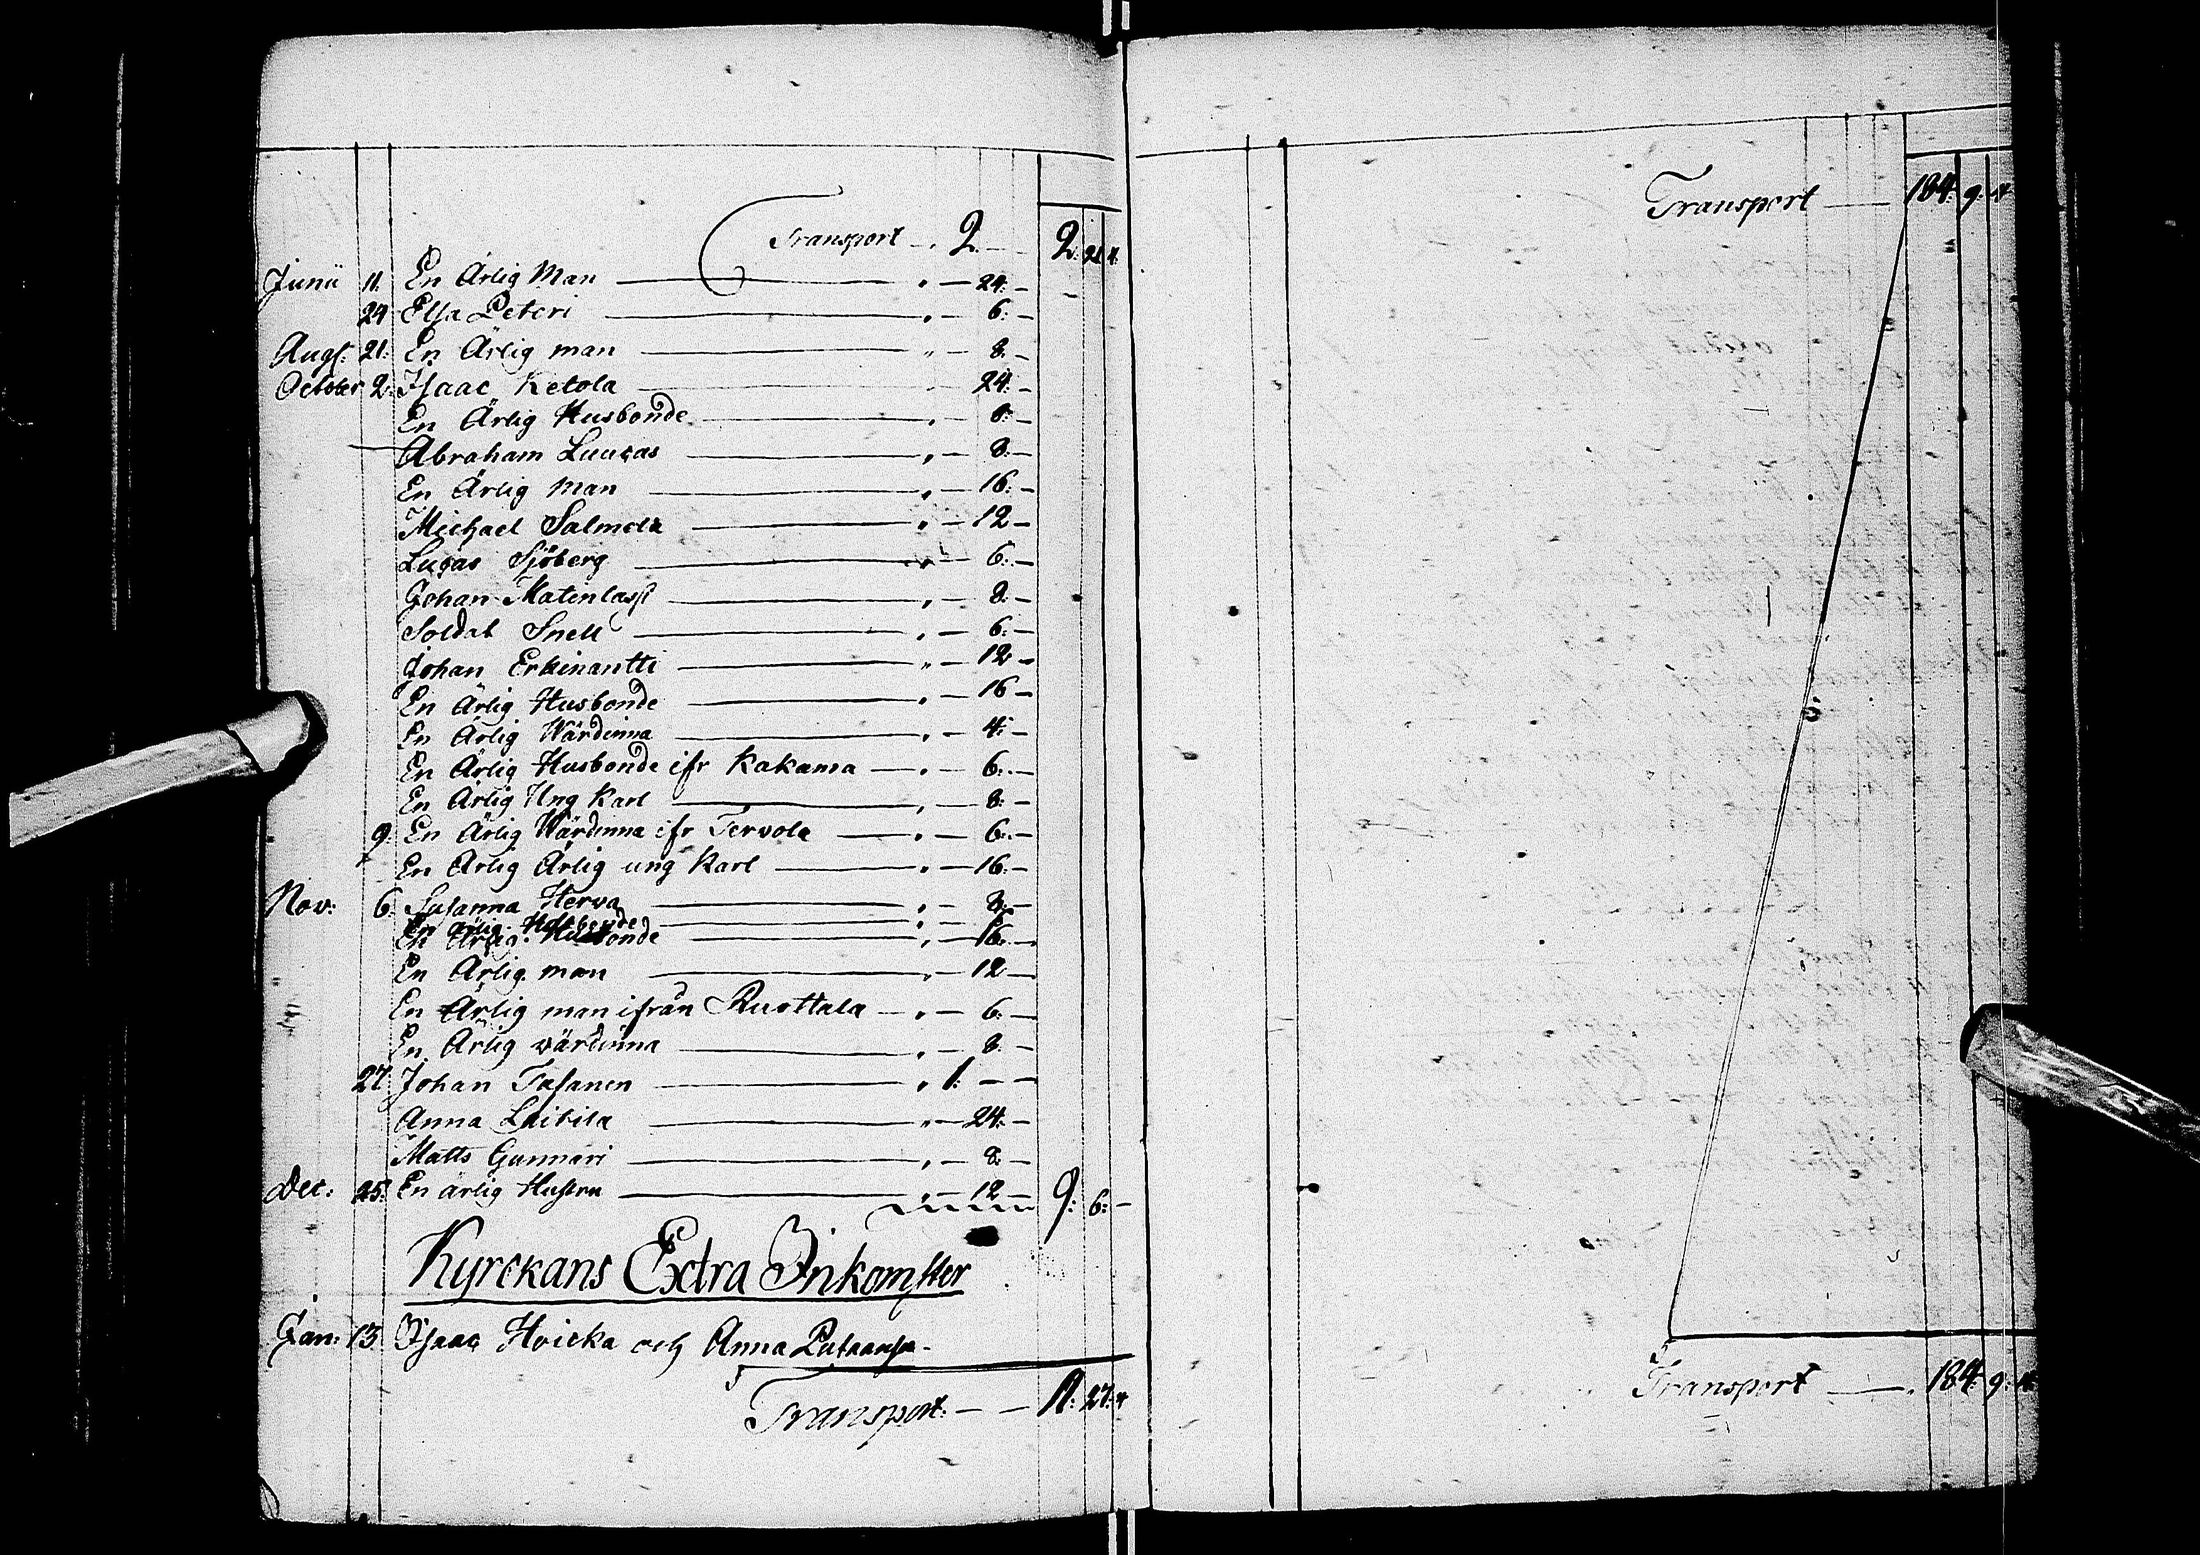 Transport - . 2. — 2: 21. 4.
Junii 11. En Ärlig Man — " — 24: —
24 Elsa Peteri — " — 6: —
Augs: 21: En Ärlig man — " — 8: —
October 2: Isaac Ketola — 24: —
En Ärlig Husbonde — " — 8: —
Abraham Luucas — " — 8: —
En Ärlig Man — " — 16: —
Michael Salmela — " — 12 —
Lucas Sjöberg — " — 6: —
Johan Matinlassi — " — 8: —
Soldat Snell — " — 6: —
Johan Erkinantti — " — 12 —
En Ärlig Husbonde — " — 16 —
En Ärlig Wärdinna — " — 4: —
En Ärlig Husbonde ifr Kakama — " — 6: —
En Ärlig Ung Karl — " — 8: —
9: En Ärlig Wärdinna ifr Tervola — " — 6: —
En Ärlig Ärlig ung Karl — " — 16: —
Nov: 6: Susanna Herva — " — 8: —
En ärlig Husbonde
En Ärlig Husbonde — " — 16: —
En Ärlig man — " — 12 —
En Ärlig man ifrån Ruottala — " — 6: —
En Ärlig värdinna — " — 8: —
27: Johan Tasanen — " 1: — —
Anna Laitila — " — 24: —
Matts Gunnari — " — 8: —
Dec: 25: En ärlig Hustru — " — 12 — 9: 6: —
Kyrckans Extra Inkomster
Jan: 13 Isaac Hoicka och Anna
Transport: — — 11: 27: 4
Transport — 184: 9: 4
Transport — . 184: 9: 4